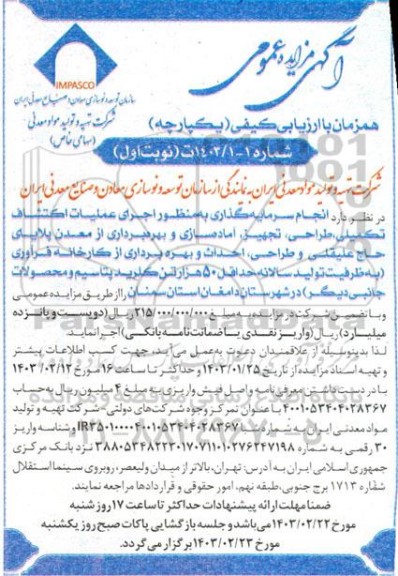 آگهی مزایده عمومی
IMPASCO
سازمان توسعه و نوسازی معادن و صنایع معدنی ایران
شرکت تهیه و تولید مواد معدنی
(سهامی خاص)
همزمان با ارزیابی کیفی (یکپارچه)
شماره ۱-۱۴۰۳/۱ت (نوبت اول)
شرکت تهیه و تولید مواد معدنی ایران به نمایندگی از سازمان توسعه و نوسازی معادن و صنایع معدنی ایران
در نظر دارد انجام سرمایه‌گذاری به منظور اجرای عملیات اکتشاف
تکمیلی، طراحی، تجهیز، آماده‌سازی و بهره‌برداری از معدن پلایای
حاج علیقلی و طراحی، احداث و بهره برداری از کارخانه فرآوری
(به ظرفیت تولید سالانه حداقل ۵۰ هزار تن کلرید پتاسیم و محصولات
جانبی دیگر) در شهرستان دامغان استان سمنان را از طریق مزایده عمومی
و با تضمین شرکت در مزایده به مبلغ ۲۱۵/۰۰۰/۰۰۰/۰۰۰ ریال (دویست و پانزده
میلیارد) ریال (واریز نقدی یا ضمانت نامه بانکی) اجرا نماید.
لذا بدینوسیله از علاقمندان دعوت به عمل می‌آید، جهت کسب اطلاعات بیشتر
و تهیه اسناد مزایده از تاریخ ۱۴۰۳/۰۱/۲۵ و حداکثر تا ساعت ۱۶ مورخ ۱۴۰۳/۰۲/۱۲
با در دست داشتن معرفی نامه و اصل فیش واریزی به مبلغ ۴ میلیون ریال به حساب
۴۰۰۱۰۵۳۴۰۴۰۲۸۳۶۷ با عنوان تمرکز وجوه شرکت‌های دولتی - شرکت تهیه و تولید
مواد معدنی ایران به شماره شبا و شناسه واریز
۳۰ رقمی به شماره نزد بانک مرکزی
جمهوری اسلامی ایران به آدرس: تهران، بالاتر از میدان ولیعصر، روبروی سینما استقلال
شماره ۱۷۱۳ برج جنوبی، طبقه نهم، امور حقوقی و قراردادها مراجعه نمایند.
ضمنا مهلت ارائه پیشنهادات حداکثر تا ساعت ۱۷ روز شنبه
مورخ ۱۴۰۳/۰۲/۲۲ می‌باشد و جلسه بازگشایی پاکات صبح روز یکشنبه
مورخ ۱۴۰۳/۰۲/۲۳ برگزار می‌گردد.